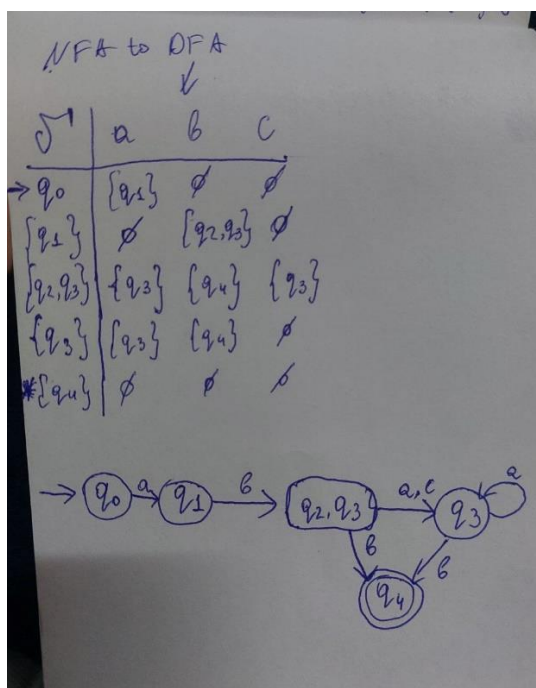 NFA to DFA
δ a b c
→ q0 {q1} ∅ ∅
{q1} ∅ {q2,q3} ∅
{q2,q3} {q3} {q4} {q3}
{q3} {q3} {q4} ∅
*{q4} ∅ ∅ ∅
q0 a q1 b q2,q3 a,c q3 a
b b
q4